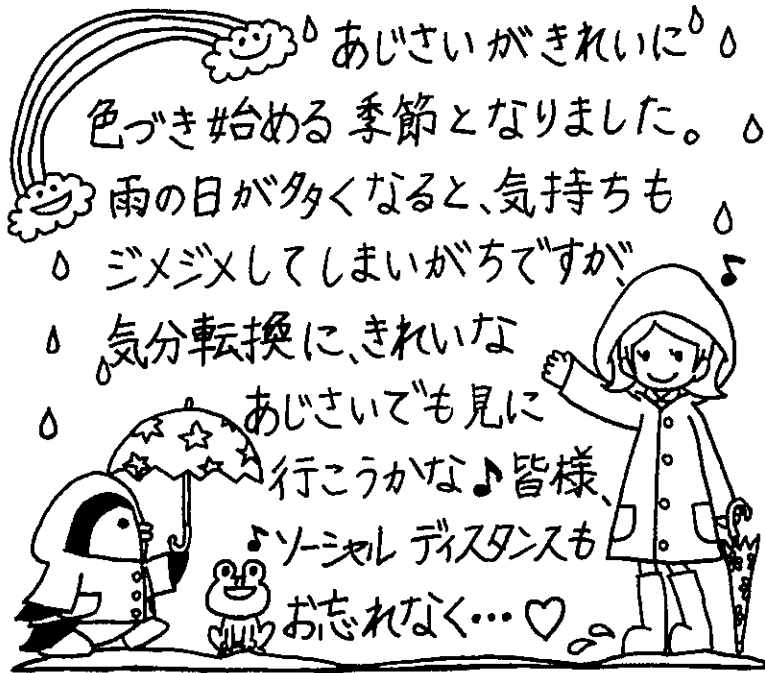 あじさいがきれいに
色づき始める季節となりました。
雨の日が多くなると、気持ちも
ジメジメしてしまいがちですが、
気分転換に、きれいな
あじさいでも見に
行こうかな♪皆様、
ソーシャルディスタンスも
お忘れなく…♡